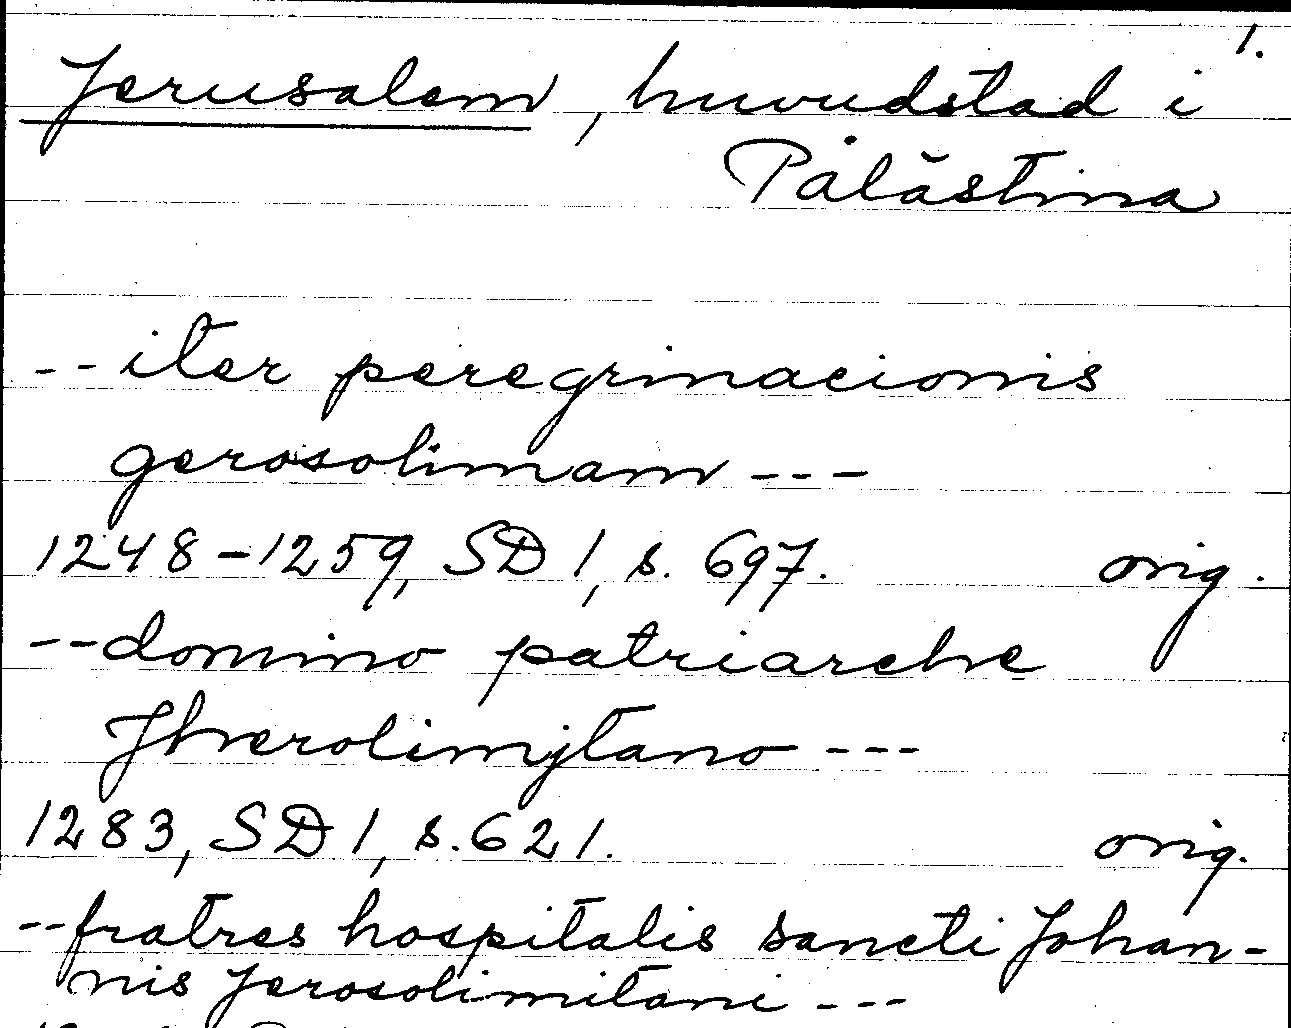 1.
Jerusalem, huvudstad i
Palästina
-- iter peregrinacionis
gerosolimam ---
1248-1259, SD 1, s. 697. orig.
-- domino patriarche
Jherolimjtano ---
1283, SD 1, s. 621. orig.
-- fratres hospitalis sancti Johan-
nis Jerosolimitani ---